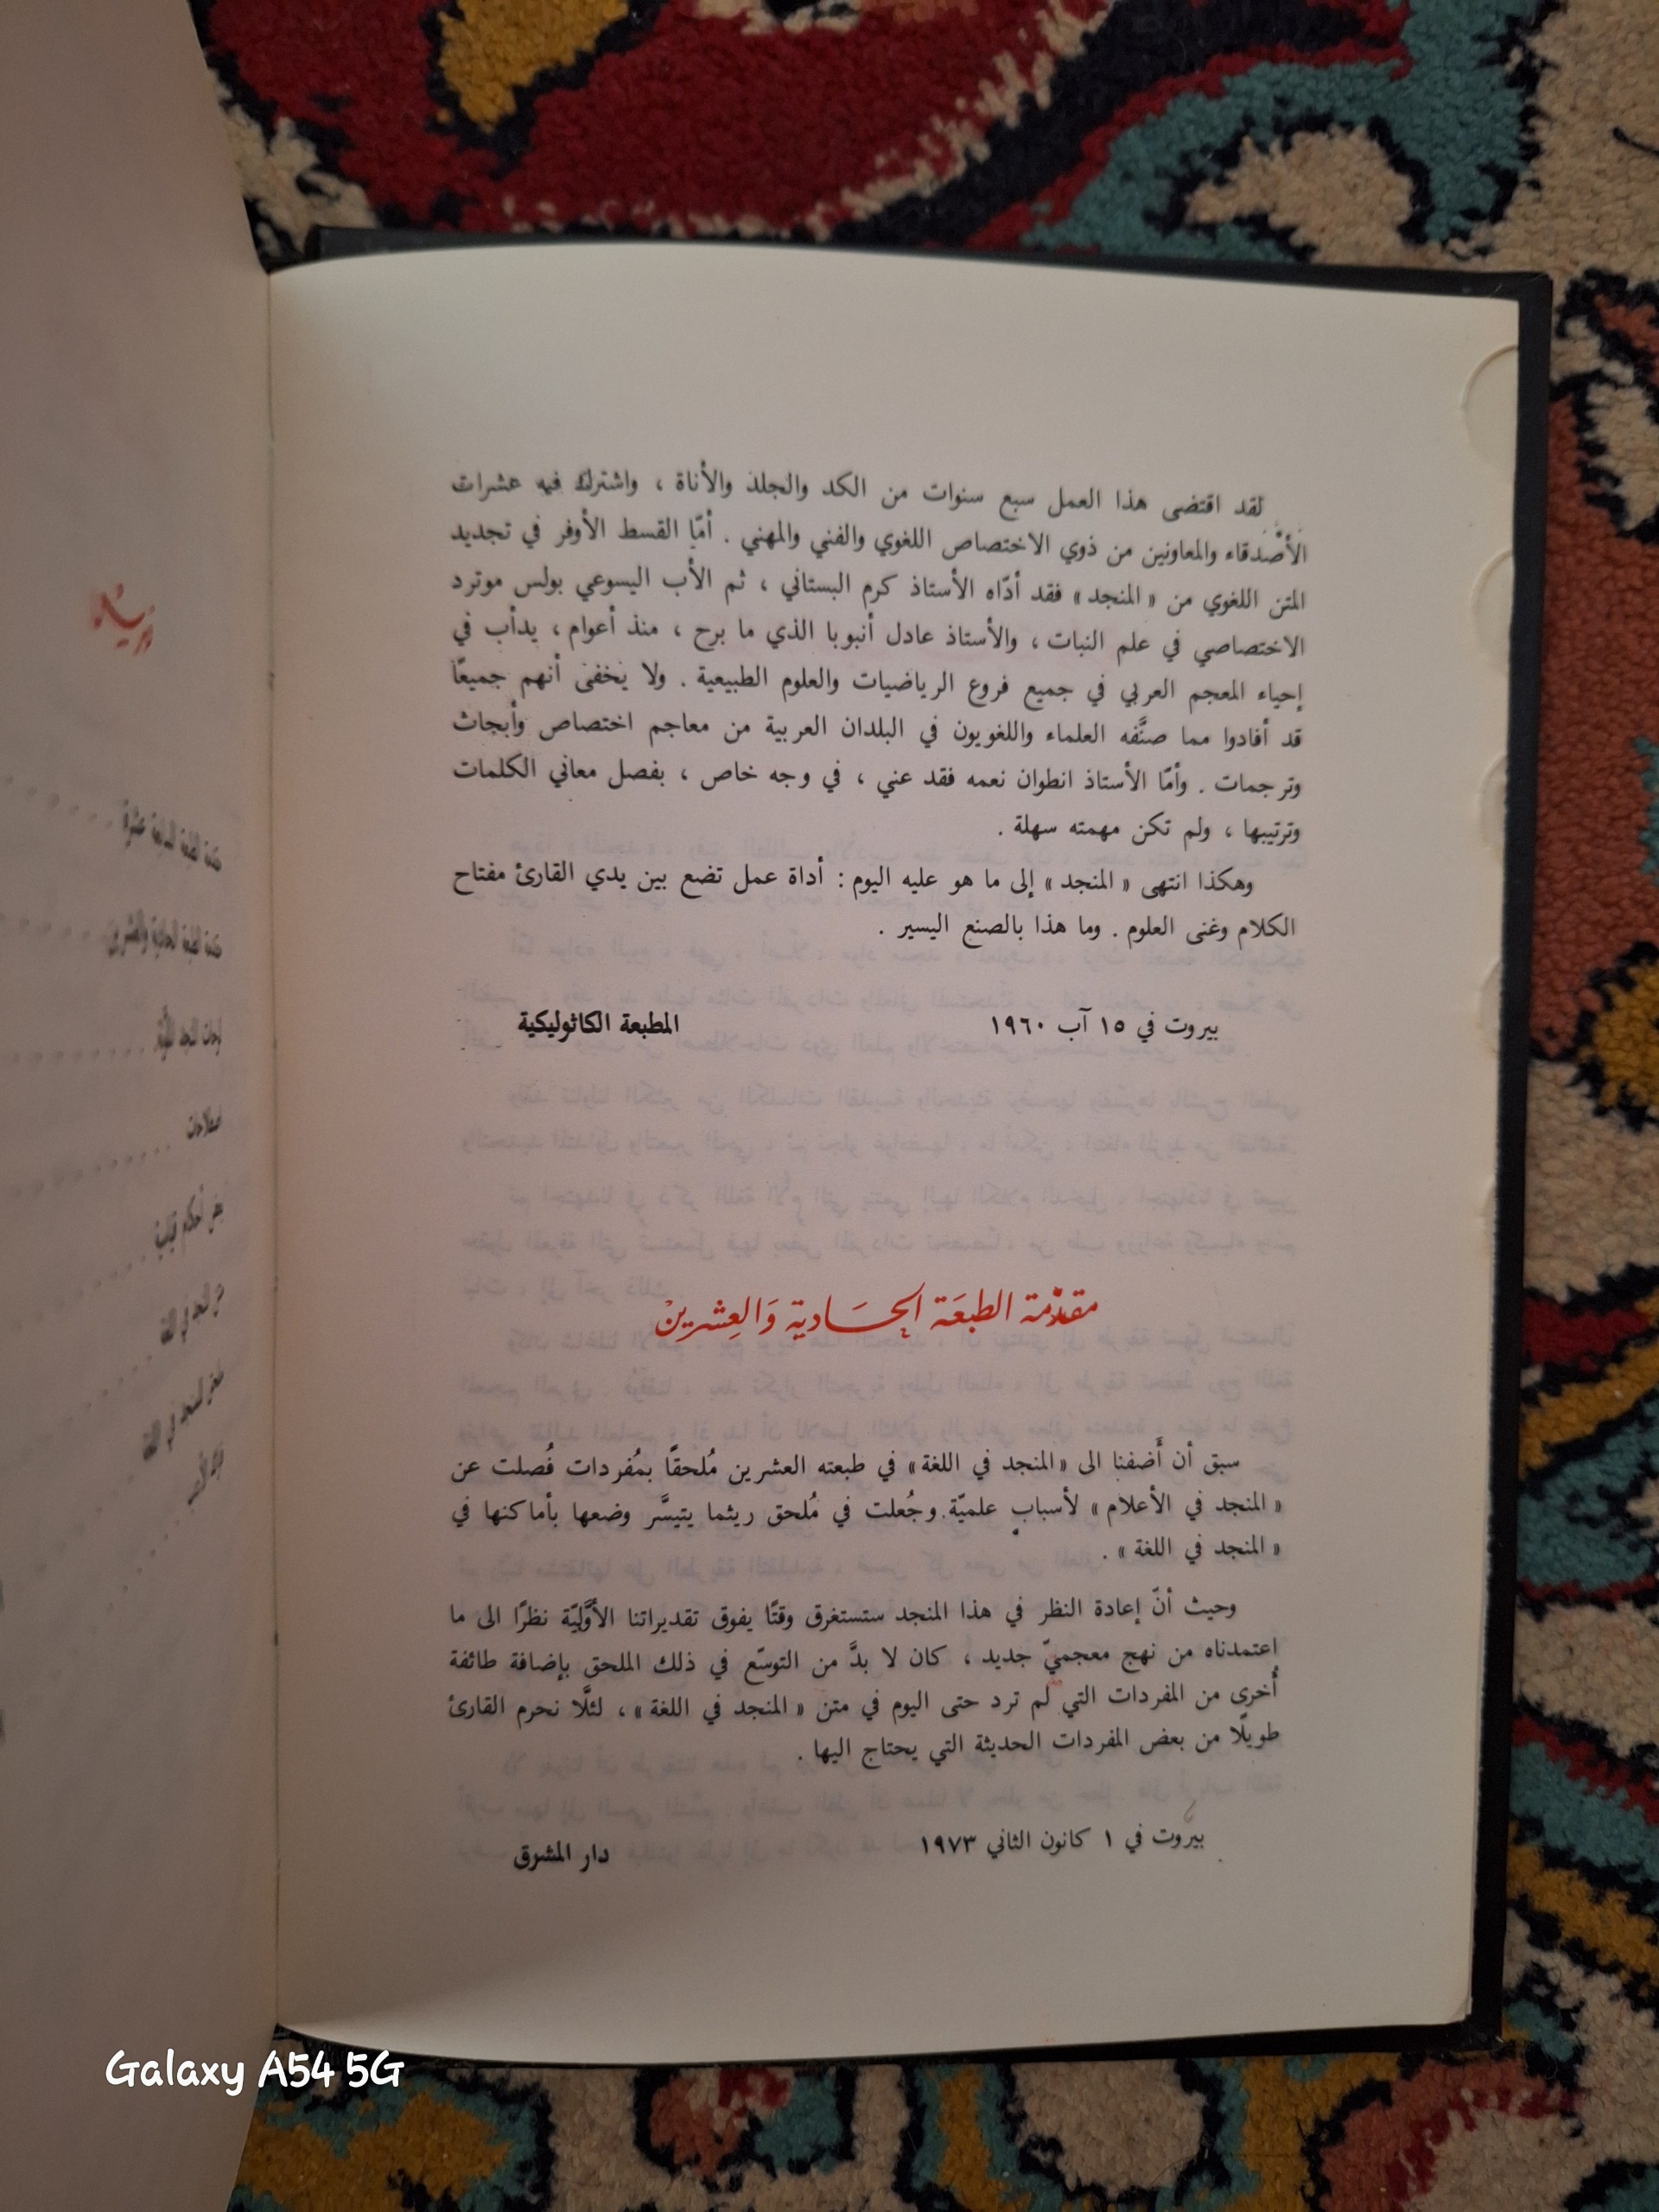 لقد اقتضى هذا العمل سبع سنوات من الكد والجلد والأناة ، واشترك فيه عشرات
الأصدقاء والمعاونين من ذوي الاختصاص اللغوي والفني والمهني . أمّا القسط الأوفر في تجديد
المتن اللغوي من « المنجد » فقد أدّاه الأستاذ كرم البستاني ، ثم الأب اليسوعي بولس موترد
الاختصاصي في علم النبات ، والأستاذ عادل أنبوبا الذي ما برح ، منذ أعوام ، يدأب في
إحياء المعجم العربي في جميع فروع الرياضيات والعلوم الطبيعية . ولا يخفى أنهم جميعًا
قد أفادوا مما صنَّفه العلماء واللغويون في البلدان العربية من معاجم اختصاص وأبحاث
وترجمات . وأمّا الأستاذ انطوان نعمه فقد عني ، في وجه خاص ، بفصل معاني الكلمات
وترتيبها ، ولم تكن مهمته سهلة .
وهكذا انتهى « المنجد » إلى ما هو عليه اليوم : أداة عمل تضع بين يدي القارئ مفتاح
الكلام وغنى العلوم . وما هذا بالصنع اليسير .
بيروت في ١٥ آب ١٩٦٠ المطبعة الكاثوليكية
مقدّمة الطبعَة الحَادية وَالعِشرينْ
سبق أن أَضفنا الى « المنجد في اللغة » في طبعته العشرين مُلحقًا بمُفردات فُصلت عن
« المنجد في الأعلام » لأسباب علميّة. وجُعلت في مُلحق ريثما يتيسَّر وضعها بأماكنها في
« المنجد في اللغة » .
وحيث أنّ إعادة النظر في هذا المنجد ستستغرق وقتًا يفوق تقديراتنا الأوَّليّة نظرًا الى ما
اعتمدناه من نهج معجميّ جديد ، كان لا بدَّ من التوسّع في ذلك الملحق بإضافة طائفة
أُخرى من المفردات التي لم ترد حتى اليوم في متن « المنجد في اللغة » ، لئلَّا نحرم القارئ
طويلًا من بعض المفردات الحديثة التي يحتاج اليها .
بيروت في ١ كانون الثاني ١٩٧٣ دار المشرق
Galaxy A54 5G